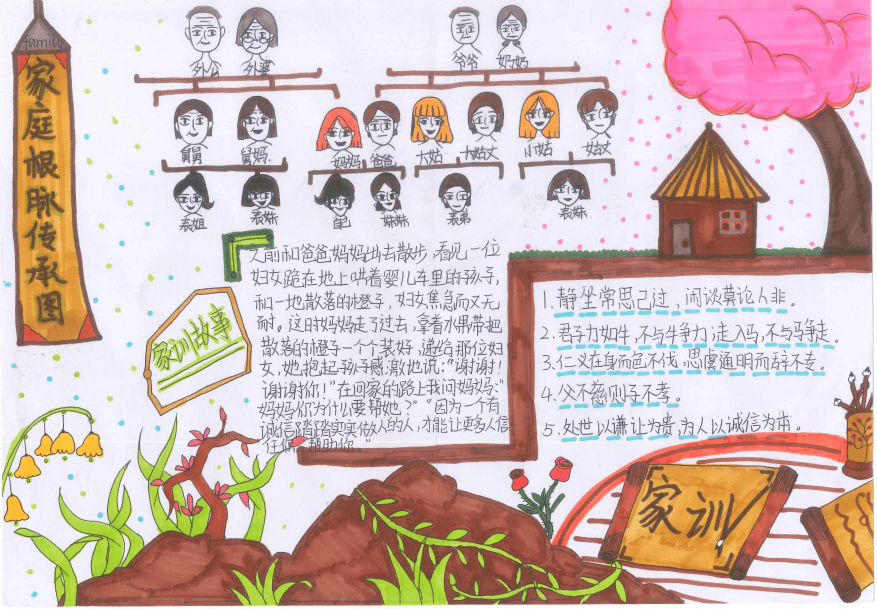 family
家庭根脉传承图
外公 外婆 爷爷 奶奶
舅舅 舅妈 妈妈 爸爸 大姑 大姑丈 小姑 姑丈
表姐 表妹 自己 妹妹 表弟 表妹
家训故事
之前和爸爸妈妈出去散步,看见一位
妇女跪在地上哄着婴儿车里的孩子,
和一地散落的橙子,妇女焦急而又无
耐。这时妈妈走了过去,拿着水果带把
散落的橙子一个个装好,递给那位妇
女,她抱起孩子感激地说:“谢谢!
谢谢你!”在回家的路上我问妈妈:“
妈妈你为什么要帮她?”“因为一个有
诚信踏踏实实做人的人,才能让更多人信
任你 帮助你。”
1.静坐常思己过,闲谈莫论人非。
2.君子力如牛,不与牛争力;走入马,不与马争走。
3.仁义在身而色不伐,思虞通明而辞不专。
4.父不慈则子不孝。
5.处世以谦让为贵,为人以诚信为本。
家训